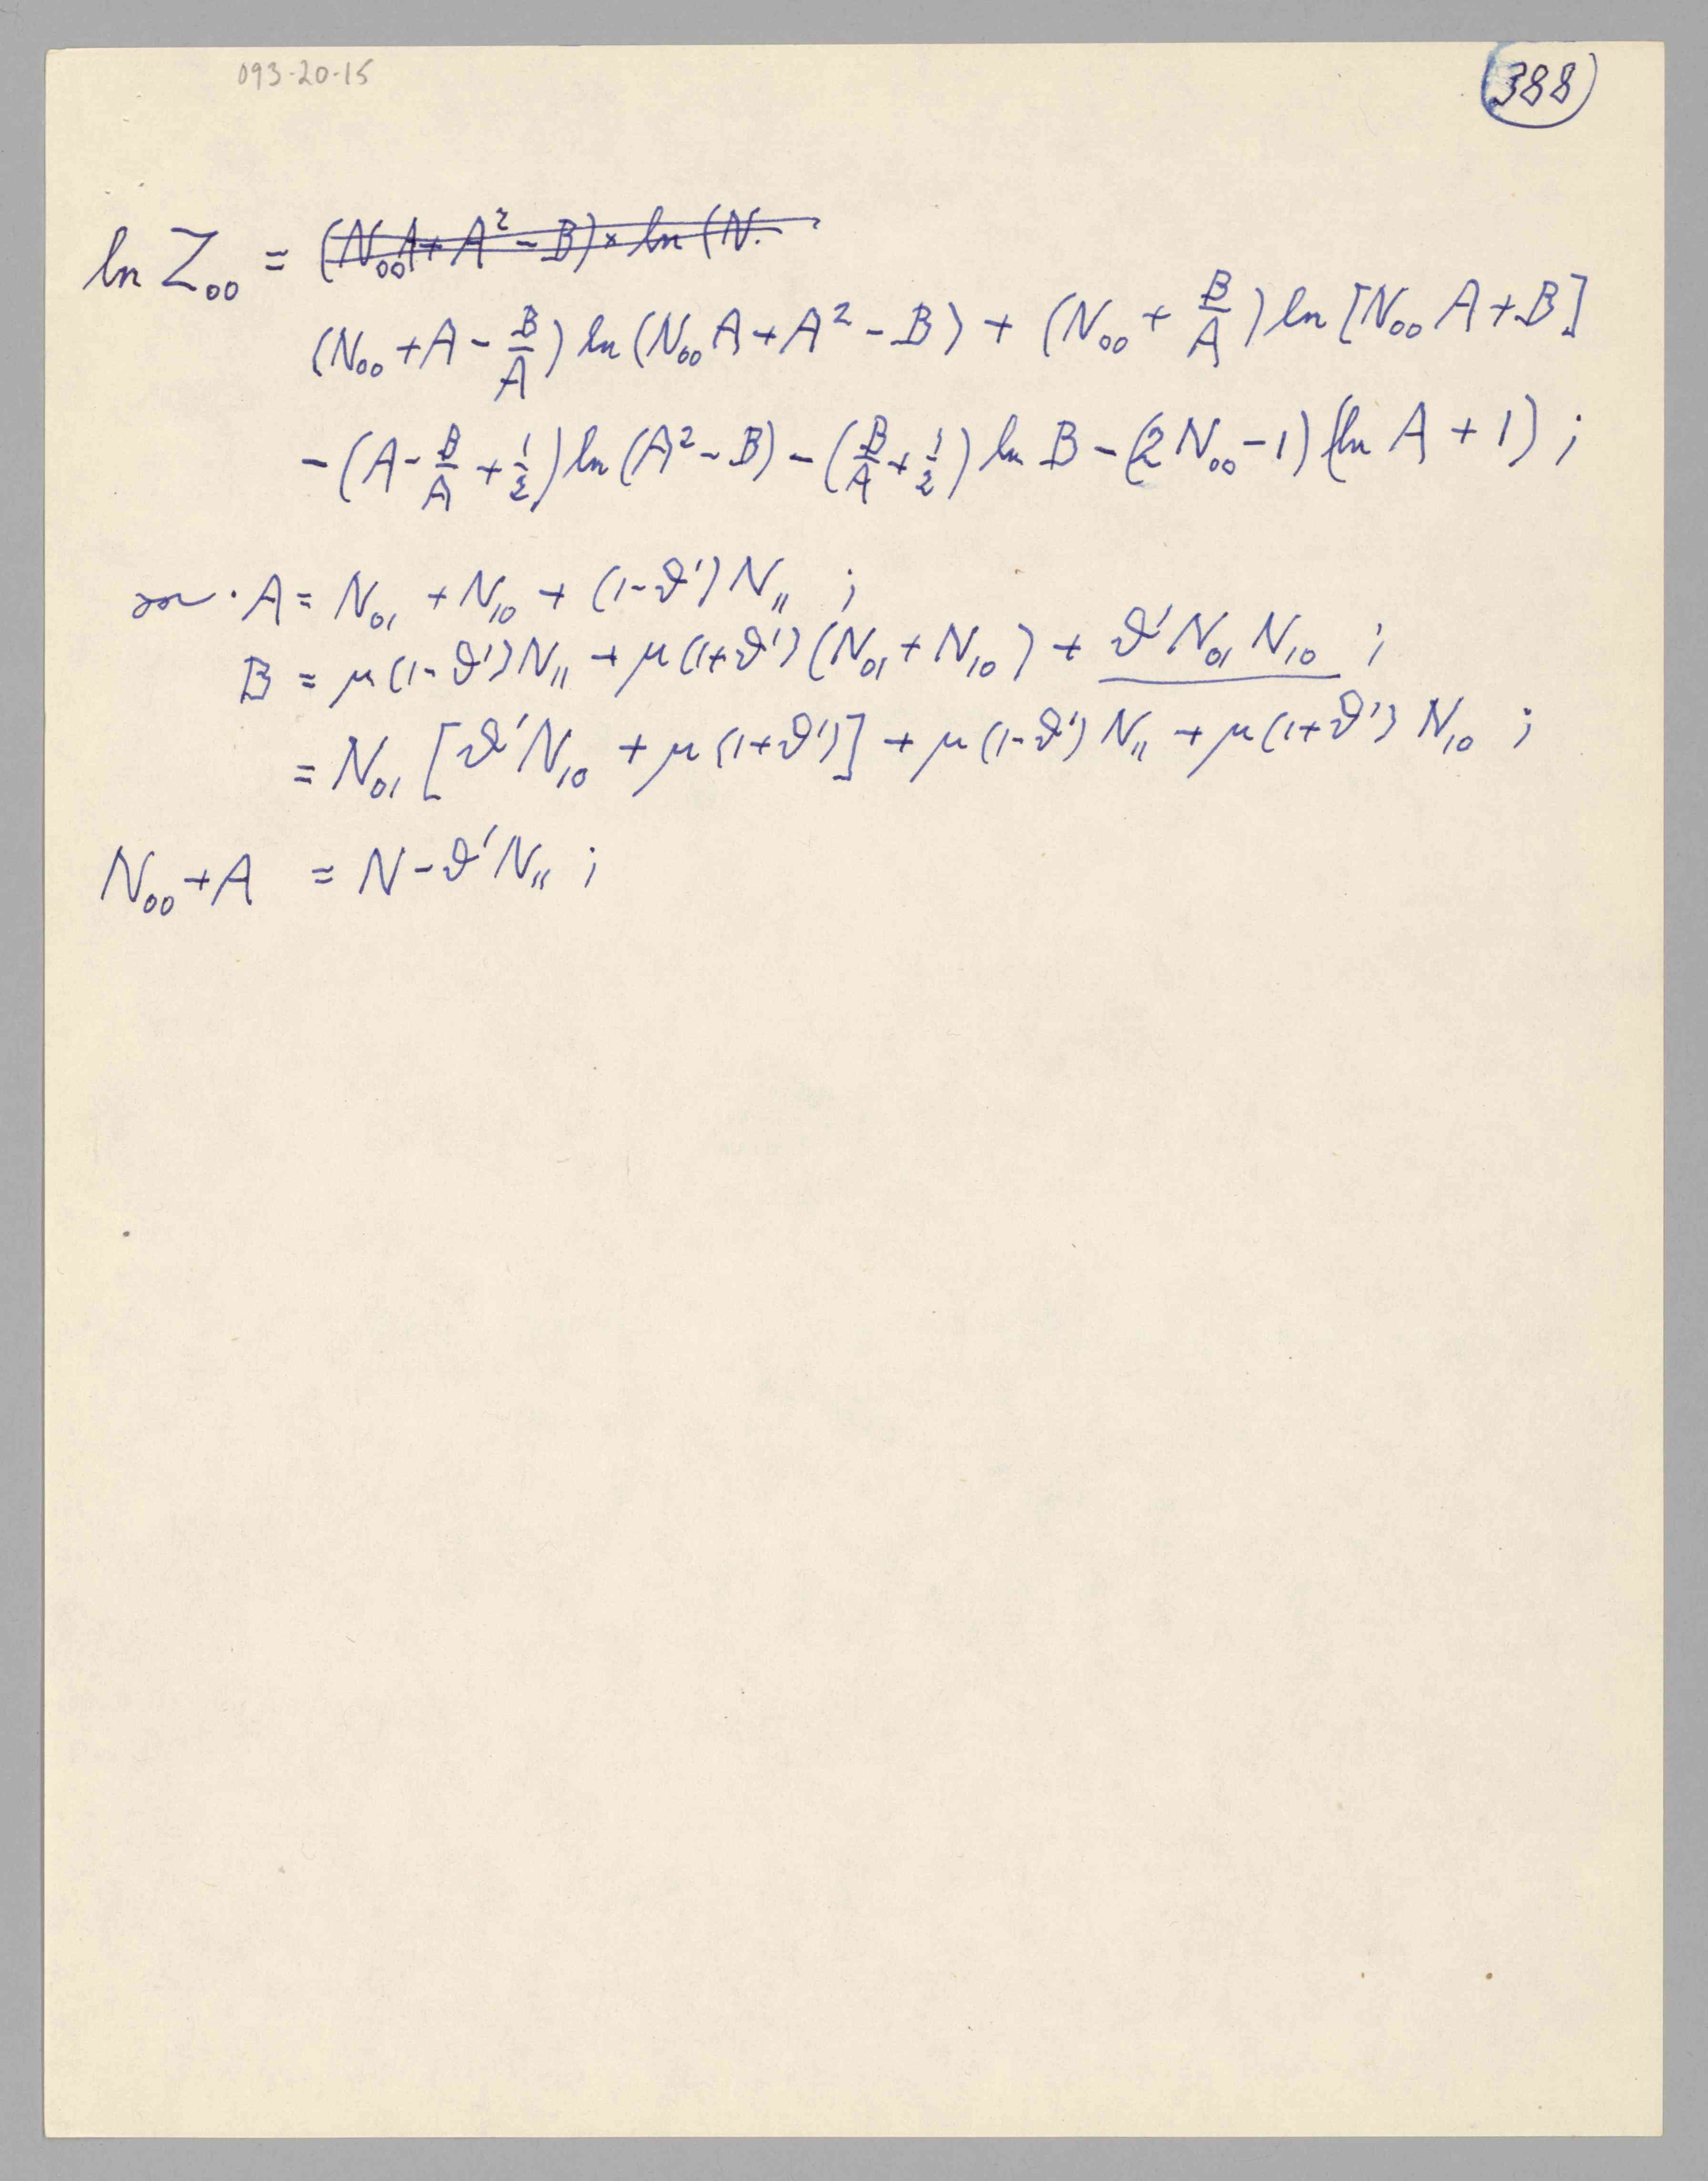 093-20-15
388
ln Z₀₀ = (N₀₀A + A² - B) × ln (N.
(N₀₀ + A - B/A) ln (N₀₀ A + A² - B) + (N₀₀ + B/A) ln [N₀₀ A + B]
- (A - B/A + 1/2) ln (A² - B) - (B/A + 1/2) ln B - (2N₀₀ - 1) (ln A + 1) ;
A = N₀₁ + N₁₀ + (1-ϑ') N₁₁ ;
B = μ (1-ϑ') N₁₁ + μ (1+ϑ') (N₀₁ + N₁₀) + ϑ' N₀₁ N₁₀ ;
= N₀₁ [ϑ' N₁₀ + μ (1+ϑ')] + μ (1-ϑ') N₁₁ + μ (1+ϑ') N₁₀ ;
N₀₀ + A = N - ϑ' N₁₁ ;